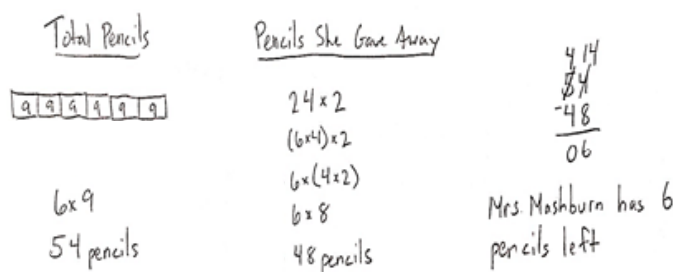 Total Pencils
9 9 9 9 9 9
6x9
54 pencils
Pencils She Gave Away
24 x 2
(6x4) x 2
6 x (4 x 2)
6 x 8
48 pencils
4 14
54
-48
06
Mrs. Mashburn has 6
pencils left